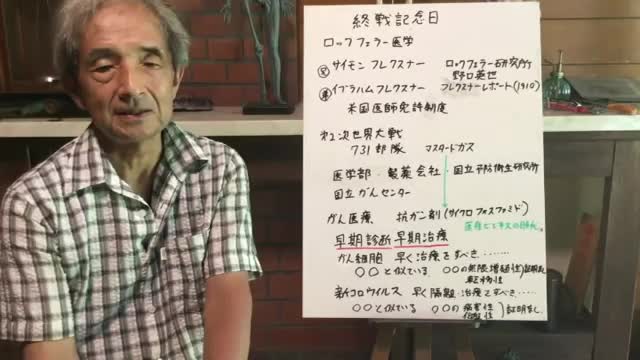 終戦記念日
ロックフェラー医学
兄 サイモン フレクスナー ロックフェラー研究所
野口英世
弟 イブラハム フレクスナー フレクスナーレポート(1910)
米国医師免許制度
第2次世界大戦
731部隊 マスタードガス
医学部・製薬会社・国立予防衛生研究所
国立がんセンター
がん医療 抗ガン剤(サイクロフォスファミド)
医療ビジネスの
早期診断 早期治療
がん細胞 早く治療をすべき……
〇〇と似ている 〇〇の無限増殖性 転移性)証明なし
新コロウイルス 早く隔離・治療をすべき……
〇〇と似ている 〇〇の病害性)証明なし